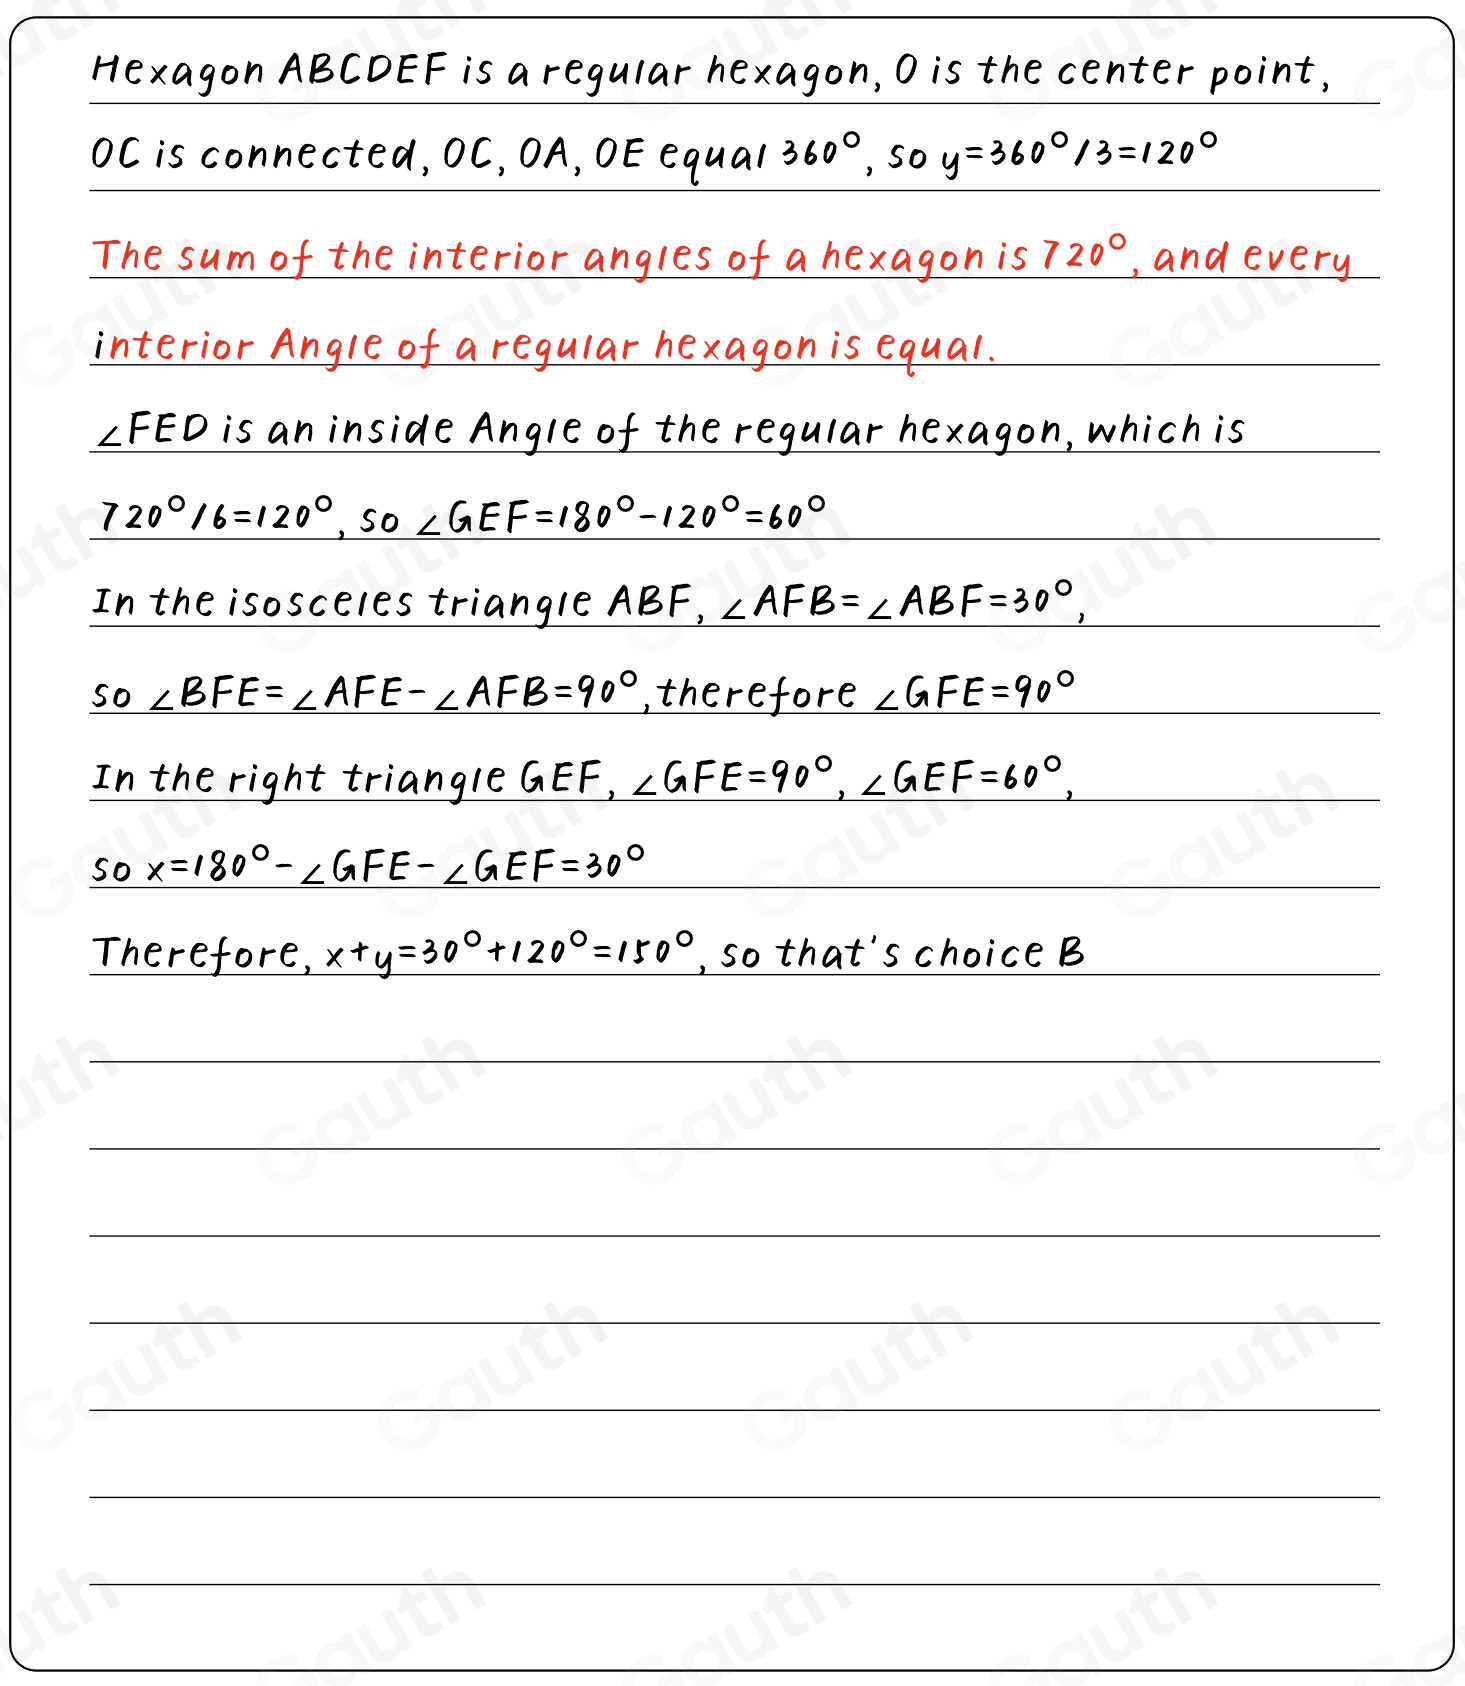 Hexagon ABCDEF is a regular hexagon, O is the center point,
OC is connected, OC, OA, OE equal 360°, so y=360°/3=120°
The sum of the interior angles of a hexagon is 720°, and every
interior Angle of a regular hexagon is equal.
∠FED is an inside Angle of the regular hexagon, which is
720°/6=120°, so ∠GEF=180°-120°=60°
In the isosceles triangle ABF, ∠AFB=∠ABF=30°,
so ∠BFE=∠AFE-∠AFB=90°,therefore ∠GFE=90°
In the right triangle GEF, ∠GFE=90°, ∠GEF=60°,
so x=180°-∠GFE-∠GEF=30°
Therefore, x+y=30°+120°=150°, so that's choice B